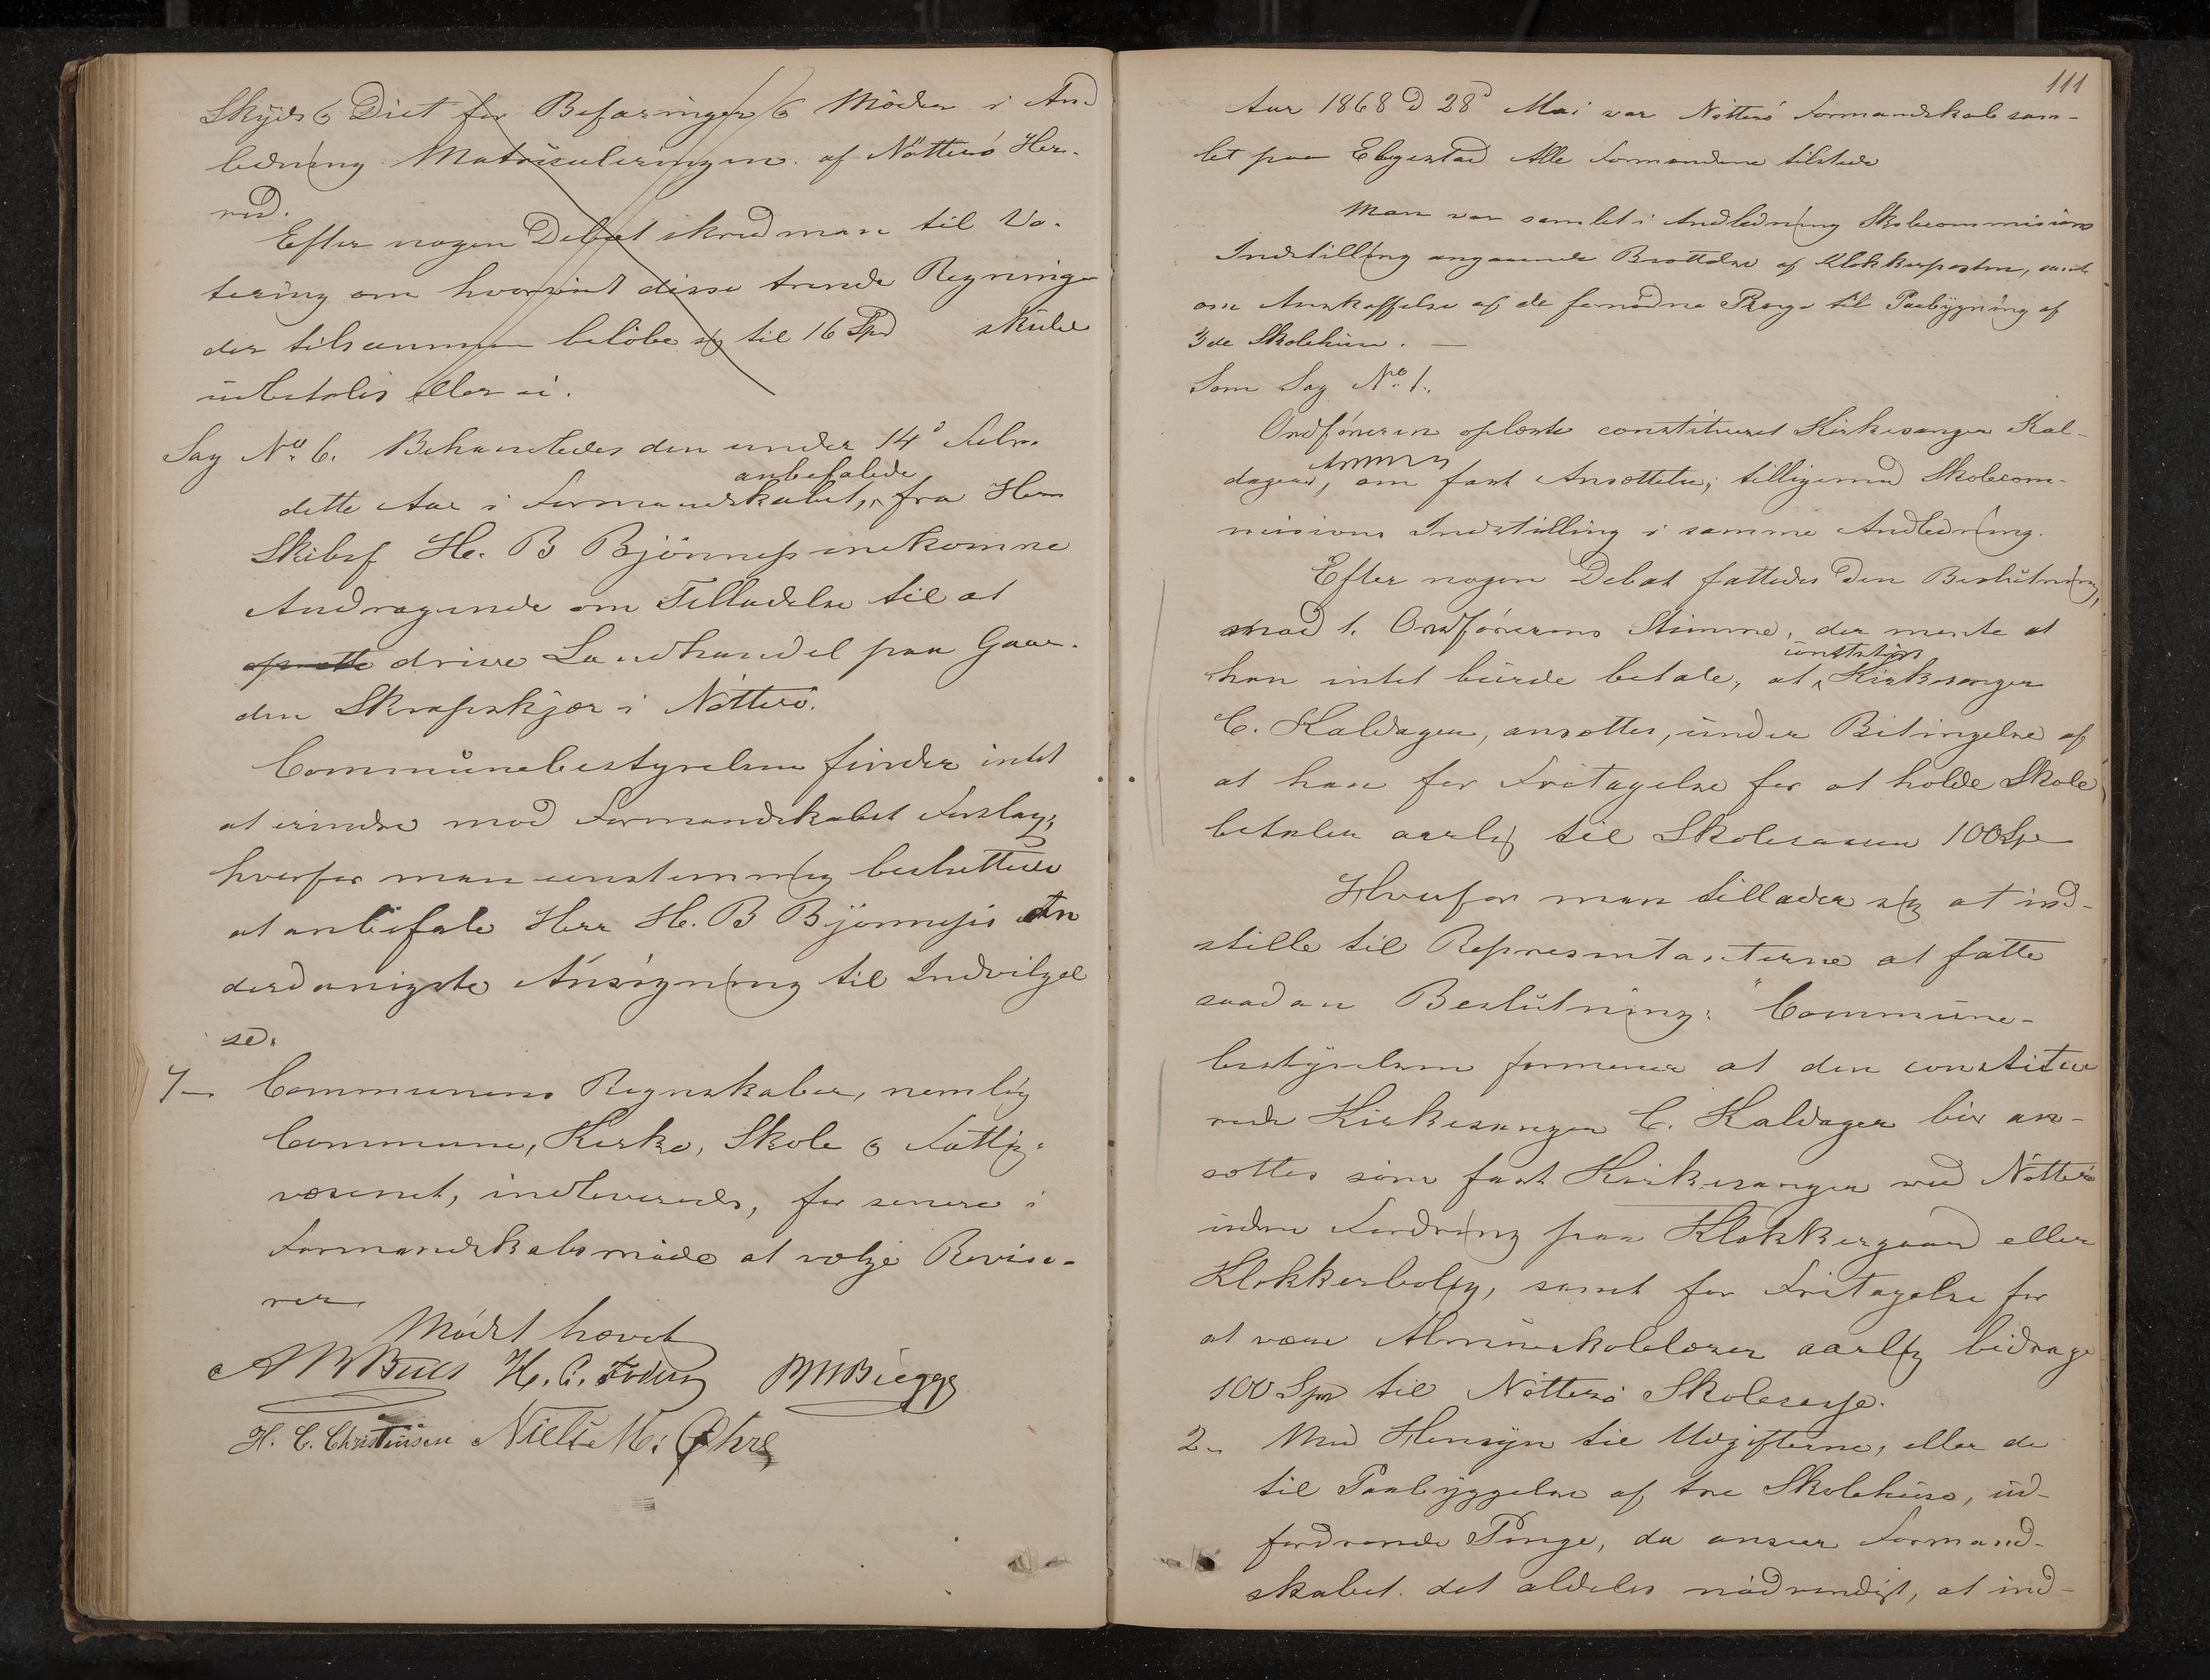 Skyds & Diet for Befaringer & Möder i An-
ledning Matriculeringen af Nötterö Her-
red.
Efter nogen Debat skred man til Vo-
tering om hvorvidt disse trende Regninger
der tilsammen beløbe sig til 16 Spd skulde
udbetales eller ei.
Sag No. 6. Behandledes den under 14d Febr.
anbefalede
dette Aar i Formandskabet, fra Herr
Skibsf H. B Bjönness indkomne
Andragende om Tilladelse til at
oprette drive Landhandel paa Gaar-
den Skrapeskjær i Nötterö.
Communebestyrelsen finder intet
at erindre mod Formandskabet Forslag,
hvorfor man eenstemmig besluttede
at anbefale Herr H. B Bjönness's un
derdanigste Ansögning til Indvilgel
se.
7- Communens Regnskaber, nemlig
Commune, Kirke, Skole & Fattig-
væsenet, indleverede, for senere i
Formandskabsmöde at vælge Reviso-
rer.
Mödet hævet
H. C. Christensen Niels M: Øhre
111
Aar 1868 d 28d Mai var Nötterö Formandskab sam-
let paa Elgestad Alle Formændene tilstede
Man var samlet i Anledning Skolecommissions
Indstilling angaaende Besættelse af Klokkerposten, samt
om Anskaffelse af de fornødne Penge til Paabygning af
3de Skolehuse. —
Som Sag No. 1.
Ordföreren oplæste constitueret Kirkesanger Kal-
dagers, om fast Ansættelse, tilligemed Skolecom-
missions Indstilling i samme Anledning.
Efter nogen Debat fattedes den Beslutning,
mod 1. Ordförerens Stimme, der mente at
han intet burde betale, at Kirkesanger
C. Kaldager, ansættes, under Betingelse af
at han for Fritagelse for at holde Skole
betaler aarlig til Skolecassen 100 Spd
Hvorfor man tillader sig at ind-
stille til Repræsentanterne at fatte
saadan Beslutning: "Commune-
bestyrelsen formener at den constitue
rede Kirkesanger C. Kaldager bör an-
sættes som fast Kirkesanger ved Nötterö
uden Fordring paa Klokkergaard eller
Klokkerbolig, samt for Fritagelse for
at være Almueskolelærer aarlig bidrage
100 Spd til Nötterö Skolecasse.
2- Med Hensyn til Udgifterne, eller de
til Paabyggelse af tre Skolehuse, ud-
fordrende Penge, da anseer Formand-
skabet det aldeles nödvendigt, at ind-